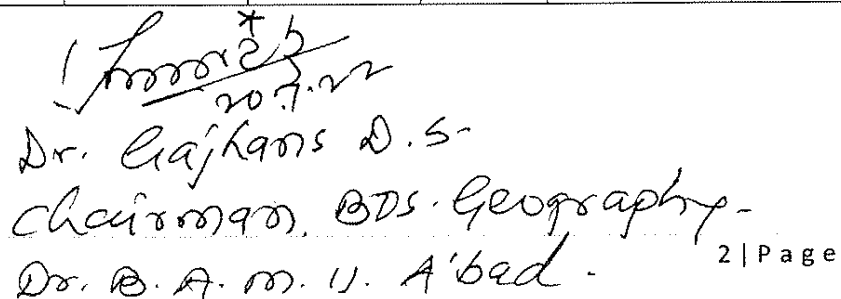 20.7.22
Dr. Gajhans D.S-
Chairman, BOS. Geography-
Dr. B. A. M. U. A'bad.
2|Page